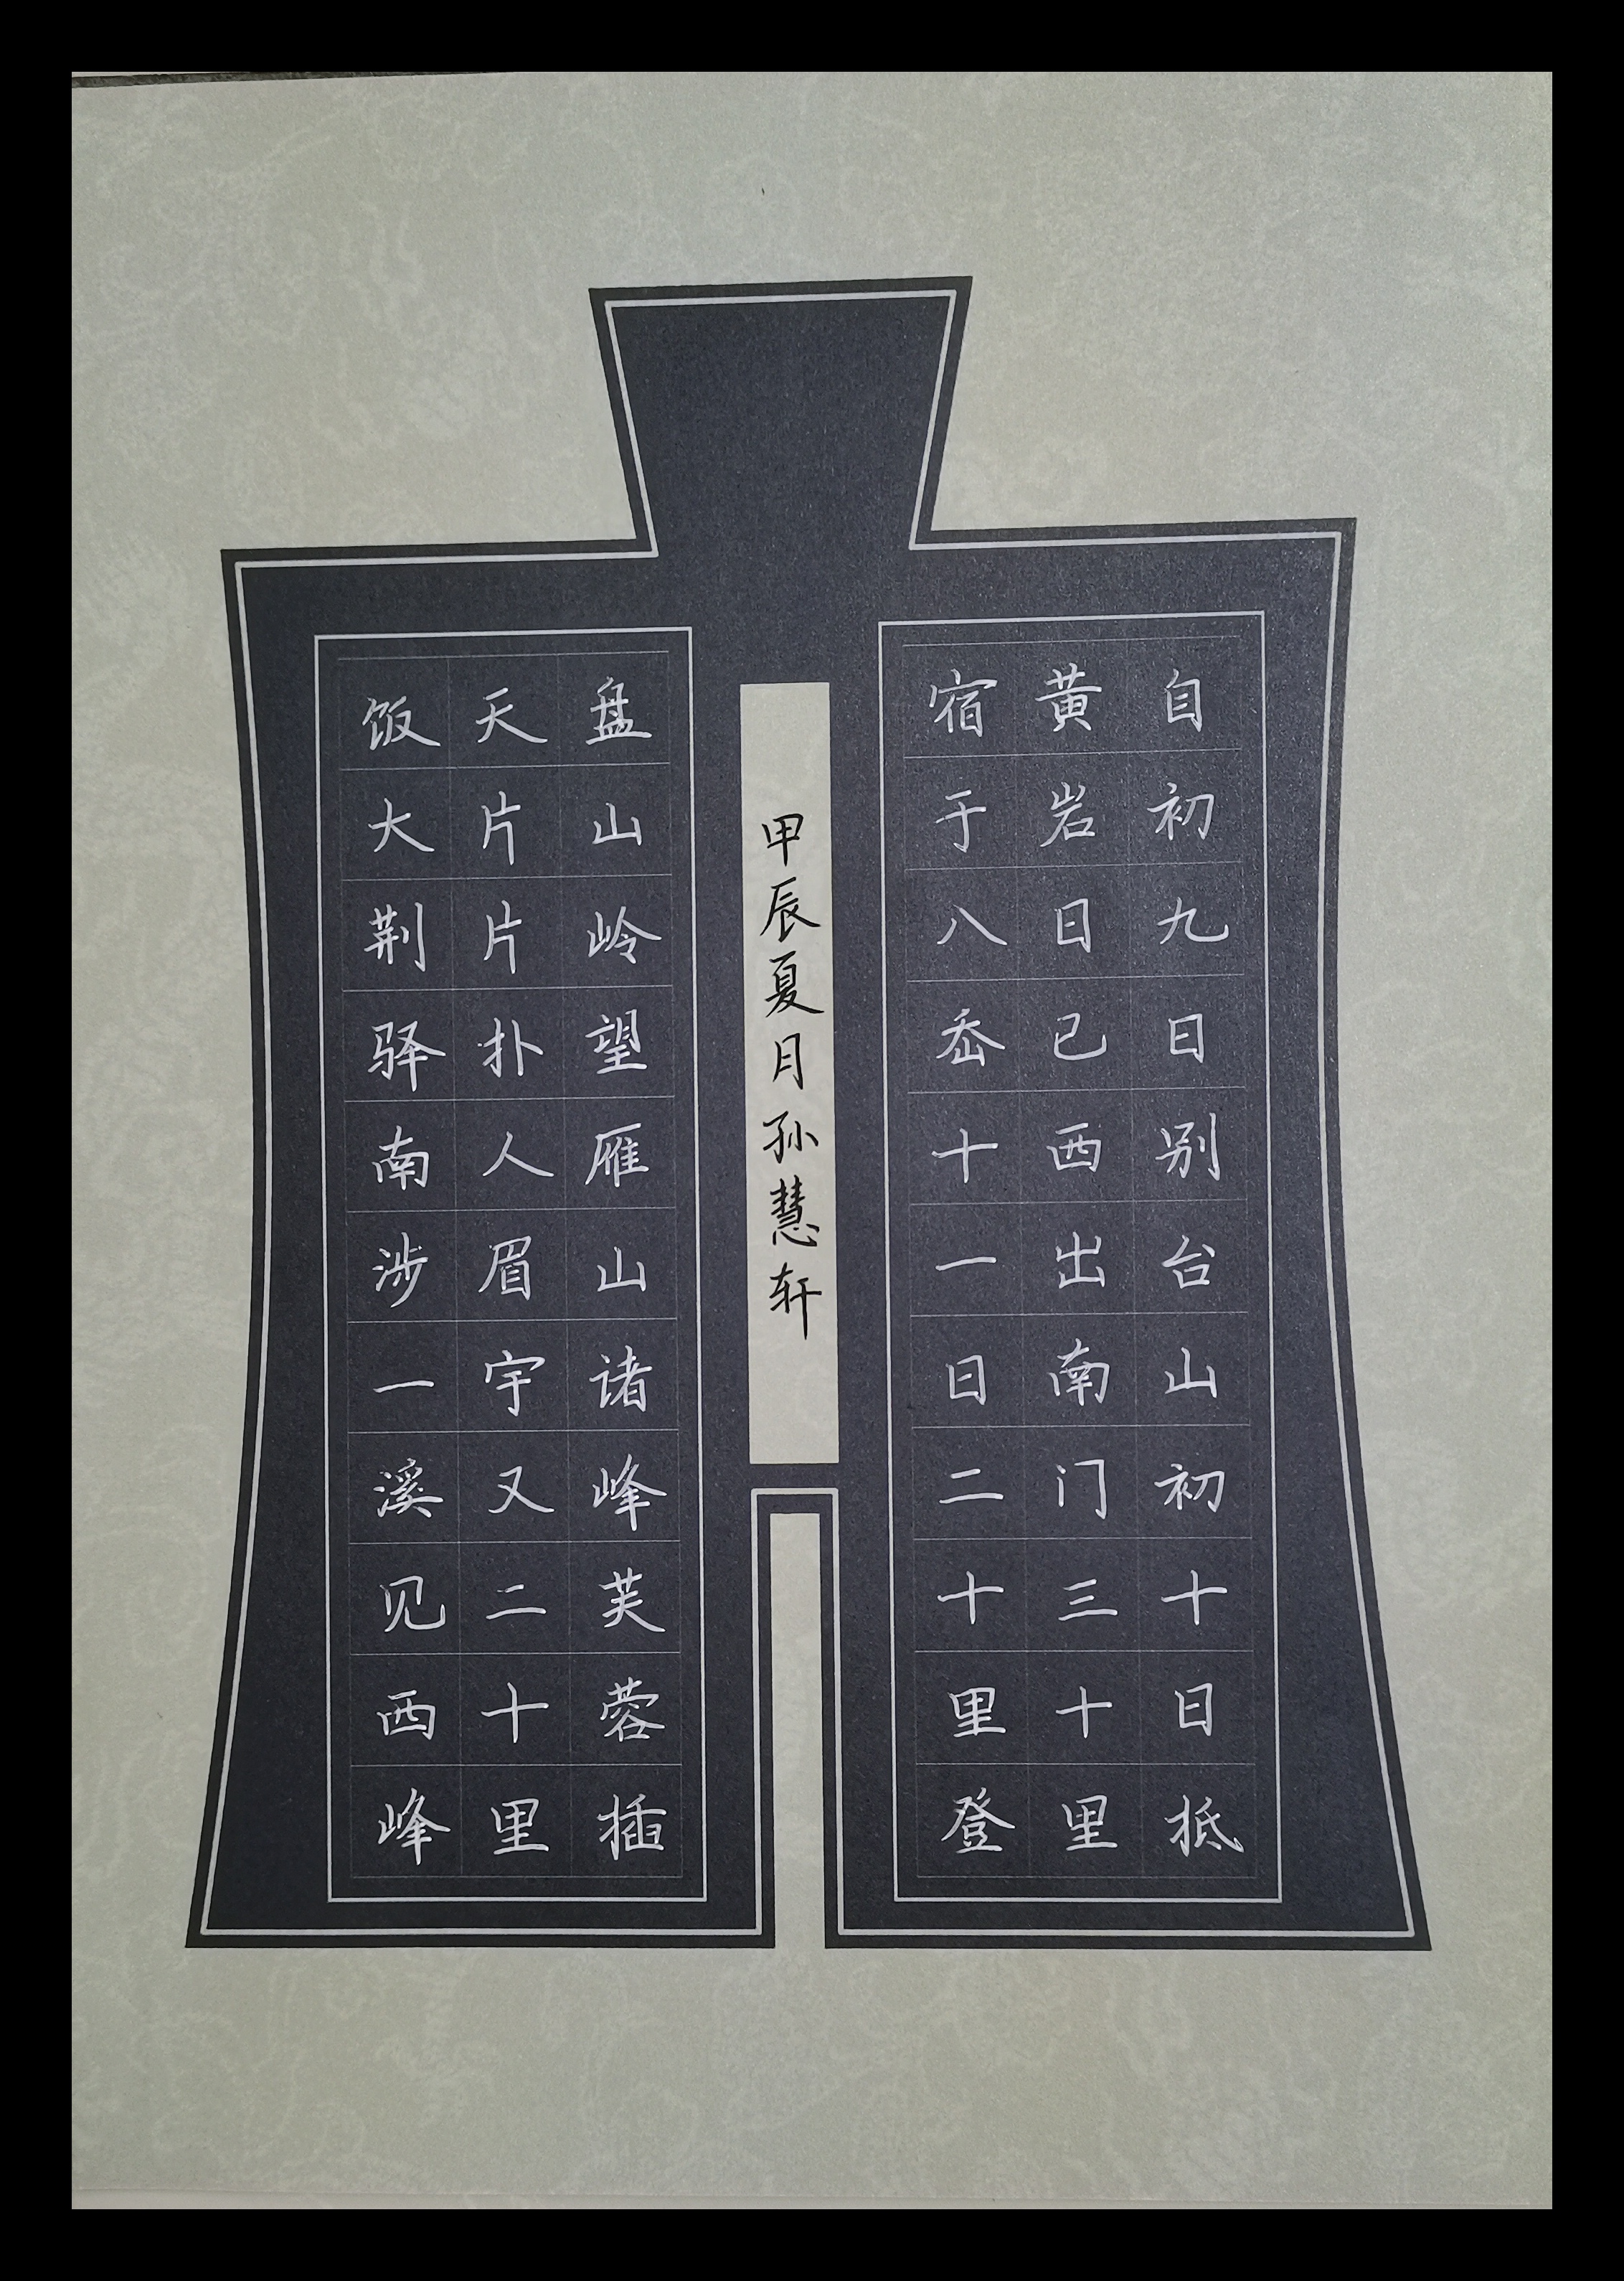 自初九日别台山初十日抵
黄岩日已西出南门三十里
宿于八岙十一日二十里登
盘山岭望雁山诸峰芙蓉插
天片片扑人眉宇又二十里
饭大荆驿南涉一溪见西峰
甲辰夏月孙慧轩